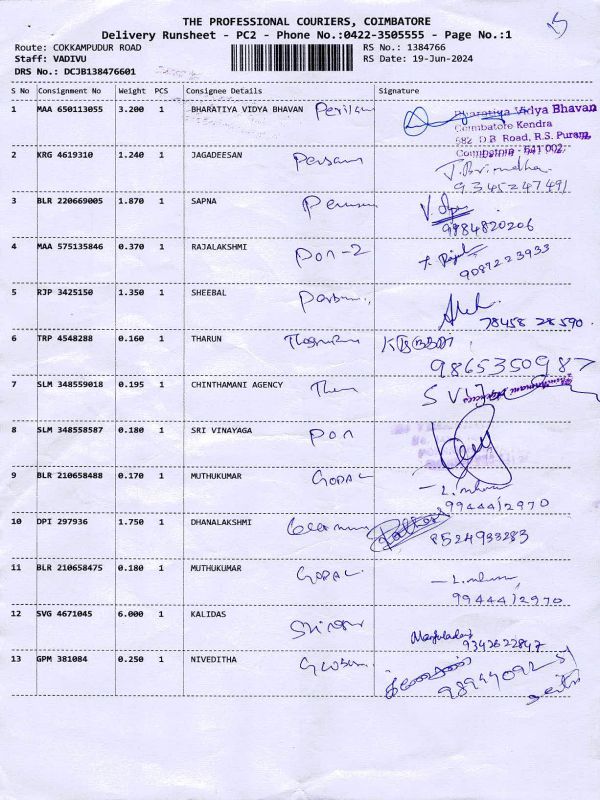 THE PROFESSIONAL COURIERS, COIMBATORE
Delivery Runsheet - PC2 - Phone No.:0422-3505555 - Page No.:1
Route: COKKAMPUDUR ROAD RS No.: 1384766
Staff: VADIVU RS Date: 19-Jun-2024
DRS No.: DCJB138476601
S No Consignment No Weight PCS Consignee Details Signature
1 MAA 650113055 3.200 1 BHARATIYA VIDYA BHAVAN
Bharatiya Vidya Bhavan
Coimbatore Kendra
582 D.B. Road, R.S. Puram,
Coimbatore - 641 002.
2 KRG 4619310 1.240 1 JAGADEESAN
9345247491
3 BLR 220669005 1.870 1 SAPNA
9984820206
4 MAA 575135846 0.370 1 RAJALAKSHMI Pon-2
9087223933
5 RJP 3425150 1.350 1 SHEEBAL
78458 28590
6 TRP 4548288 0.160 1 THARUN
9865350987
7 SLM 348559018 0.195 1 CHINTHAMANI AGENCY
8 SLM 348558587 0.180 1 SRI VINAYAGA Pon
9 BLR 210658488 0.170 1 MUTHUKUMAR GOPAL
9944412970
10 DPI 297936 1.750 1 DHANALAKSHMI
8524933283
11 BLR 210658475 0.180 1 MUTHUKUMAR GOPAL
9944412970
12 SVG 4671045 6.000 1 KALIDAS
9342622847
13 GPM 381084 0.250 1 NIVEDITHA